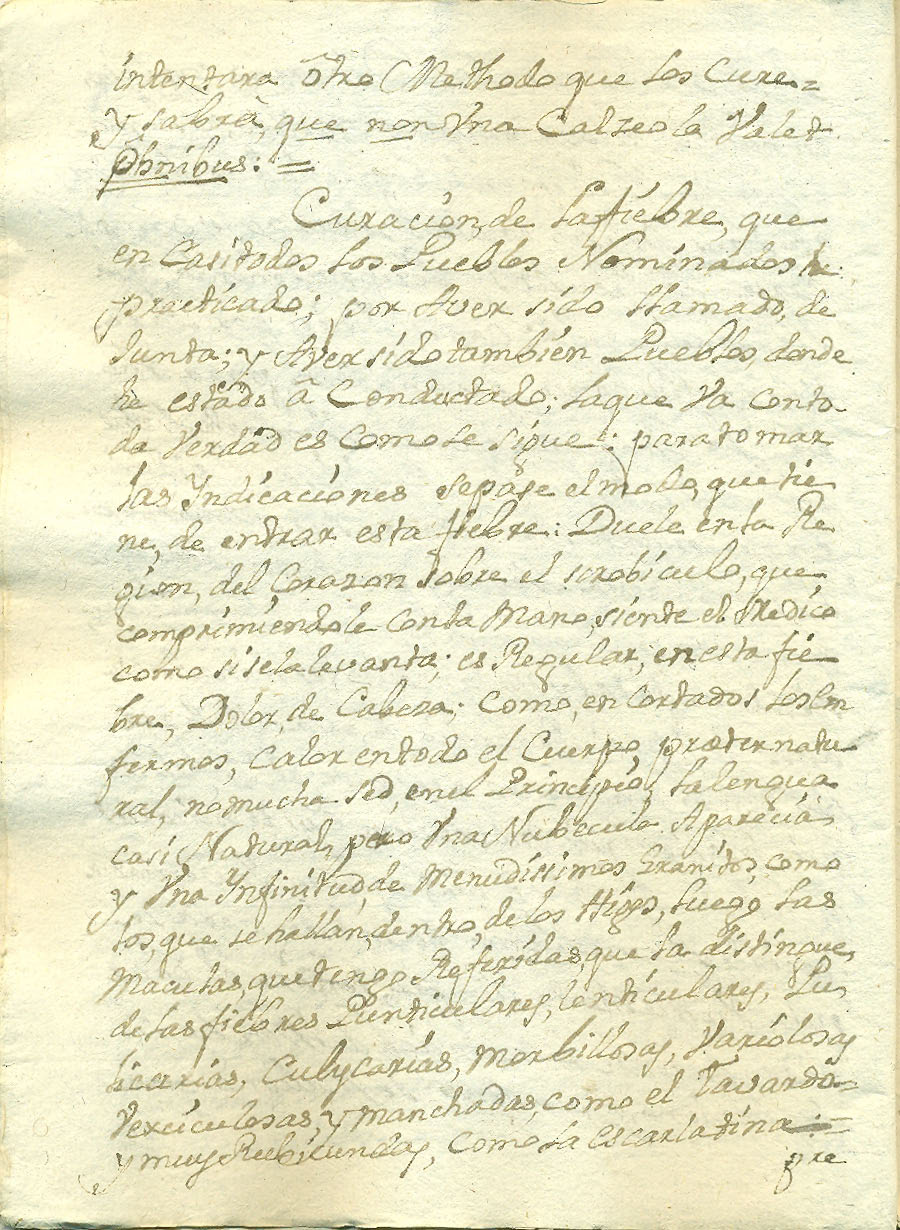 intentara ôtro Methodo que los Cure =
y sabrâ, que non Vna Calzeola Valet
Ohnibus: =
Curacion, de la fiebre, que
en Casi todos los Pueblos Nominados he
practicado; por Aver sido llamado, de
Junta; y Aver sido tambien Pueblos, donde
he estado â Conductado; la que Va con to
da Verdad es Como se sigue: para tomar
las Yndicaciones sepase el modo, que tie
ne, de entrar esta fiebre: Duele en la Re
gion, del Corazon sobre el scrobiculo, que
comprimiendole Con la Mano, siente el Medico
como si se la levanta; es Regular, en esta fie
bre, Dolor, de Cabeza; Como, en Cortados los En
fermos, Calor en todo el Cuerpo, præternatu
ral, no mucha Sed, en el Principio, la lengua
casi Natural, pero Vna Nubecula Aparecia
y Vna Ynfinitud, de Menudissimos Granitos, como
los, que se hallan, dentro, de los Higos, luego las
Maculas, que tengo Referidas, que la distingue,
de las fiebres Puncticulares, lenticulares, Pu
licarias, Culycarias, Morbillosas, Variolosas
Verciculosas, y manchadas, como el Tavardo =
y muy Rubicundas, Como la escarlatina: =
pre